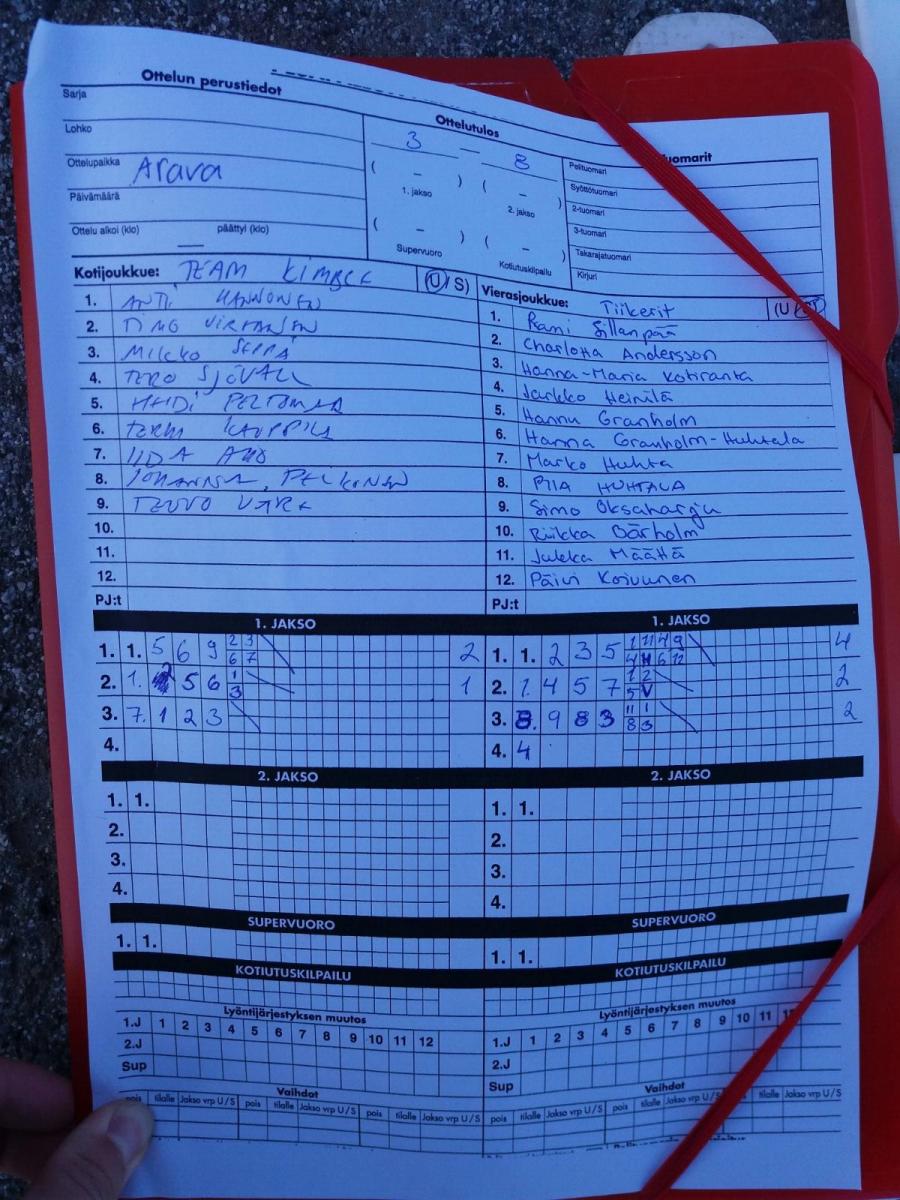 Ottelun perustiedot
Sarja
Lohko
Ottelupaikka Arava
Päivämäärä
Ottelu alkoi (klo) päättyi (klo)
Ottelutulos
3 — 8
( – ) ( – )
1. jakso 2. jakso
( – ) ( – )
Supervuoro Kotiutuskilpailu
Pelituomari
Syöttötuomari
2-tuomari
3-tuomari
Takarajatuomari
Kirjuri
Kotijoukkue: TEAM (U/S)
1. ANTI HANNONEN
2. TIMO VIRTANEN
3. MIKKO SEPPÄ
4. TERO SJÖVALL
5. HEIDI PELTOMAA
6. KAUPPILA
7. IIDA AHO
8. JOHANNA PELKONEN
9. TEUVO
10.
11.
12.
PJ:t
Vierasjoukkue: Tiikerit
1. Rami Sillanpää
2. Charlotta Andersson
3. Hanna-Maria Kotiranta
4. Jarkko Heinilä
5. Hannu Granholm
6. Hanna Granholm-Huhtala
7. Marko Huhta
8. PIIA HUHTALA
9. Simo Oksaharju
10. Riikka Bärholm
11. Jukka Määttä
12. Päivi Koivunen
PJ:t
1. JAKSO
1. 1. 5 6 9 2 3 2
6 7
2. 1. 5 6 1 1
3
3. 7. 1 2 3
4.
1. JAKSO
1. 1. 2 3 5 1 11 4 9 4
4 6 12
2. 1. 4 5 7 1 2 2
5 V
3. 8. 9 8 3 11 1 2
8 3
4. 4
2. JAKSO
1. 1.
2.
3.
4.
2. JAKSO
1. 1.
2.
3.
4.
SUPERVUORO
1. 1.
SUPERVUORO
1. 1.
KOTIUTUSKILPAILU
KOTIUTUSKILPAILU
Lyöntijärjestyksen muutos
1.J 1 2 3 4 5 6 7 8 9 10 11 12
2.J
Sup
Lyöntijärjestyksen muutos
1.J 1 2 3 4 5 6 7 8 9 10 11
2.J
Sup
Vaihdot
pois tilalle Jakso vrp U/S pois tilalle Jakso vrp U/S pois tilalle Jakso vrp U/S
Vaihdot
pois tilalle Jakso vrp U/S pois tilalle Jakso vrp U/S tilalle Jakso vrp U/S